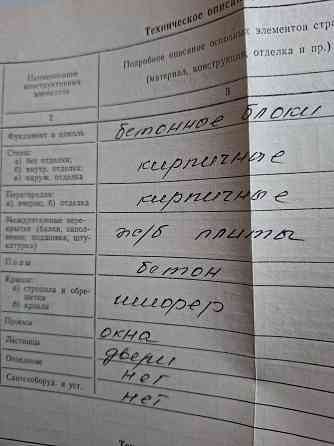 Техническое описан
Наименование конструктивных элементов
Подробное описание основных элементов стр
(материал, конструкция, отделка и пр.)
2
3
Фундамент и цоколь
бетонные блоки
Стены:
а) без отделки;
б) внутр. отделка;
в) наруж. отделка
кирпичные
Перегородки:
б) отделка
кирпичные
Междуэтажные перекрытия (балки, заполнение, подшивка, штукатурка)
ж/б плиты
Полы
бетон
Крыша:
а) стропила и обрешетка
б) кровля
шифер
Проемы
окна
Лестницы
двери
Отопление
нет
Сантехоборуд. и уст.
нет
Техн